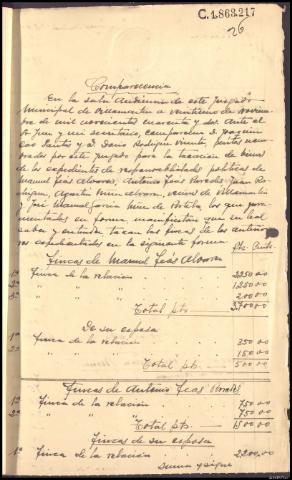 C.1.863.217
26
Comparecencia
En la sala Audiencia de este Juzgado
Municipal de Villamartin a veintiuno de noviem-
bre de mil novecientos cuarenta y dos. Ante el
Sr Juez y mi secretario, comparecen D. Joaquin
Santos y D. Dario Rodriguez peritos nom-
brados por este Juzgado para la tasacion de bienes
de los expedientes de responsabilidades politicas de
Manuel Feás Alvarez, Antonio Feás Juan Ro-
driguez, Agustin Alvarez, vecinos de Villamartin
y José Manuel Garcia de los que jura-
mentados en forma manifiestan que en leal
saber y entender tasan las fincas de los anterio-
res expedientados en la siguiente forma
Pts. Cnts.
Fincas de Manuel Feás Alvarez
1ª Finca de la relación 2250 00
2ª " " " " 1250 00
3ª " " " " 200 00
Total pts 3700 00
De su esposa
1ª Finca de la relación 350 00
2ª " " " " 150 00
Total pts 500 00
Fincas de Antonio Feas
1ª Finca de la relación 750 00
2ª " " " 750 00
Total pts. 1500 00
Fincas de su esposa
1ª Finca de la relación 2200,00
suma y sigue